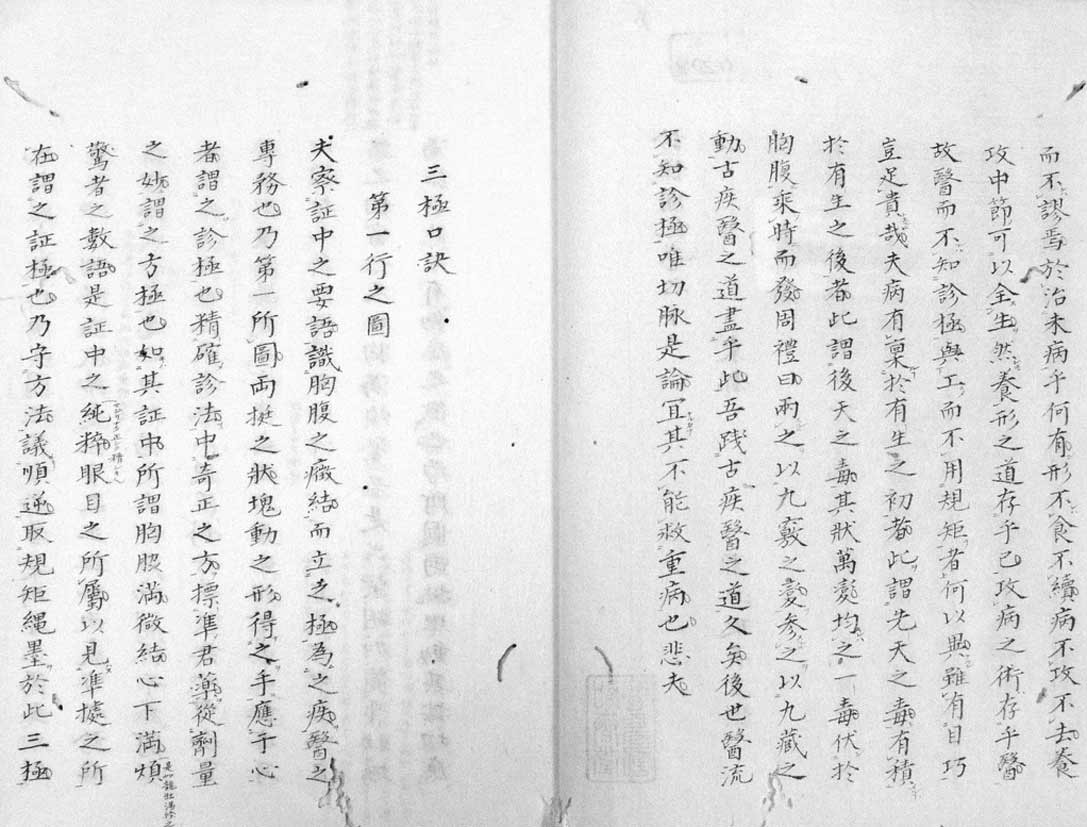 而不謬焉於治未病乎何有形不食不續病不攻不去養
攻中節可以全生然養形之道存乎已攻病之術存乎醫
故醫而不知診極與工而不用規矩者何以異雖有目巧
豈足貴哉夫病有稟於有生之初者此謂先天之毒有積
於有生之後者此謂後天之毒其狀萬變均之一毒伏於
胸腹乘時而發周禮曰兩之以九竅之變參之以九藏之
動古疾醫之道盡乎此吾踐古疾醫之道久矣後世醫流
不知診極唯切脉是論冝其不能救重病也悲夫
三極口訣
第一行之圖
夫察証中之要語識胸腹之癥結而立之極為之疾醫之
專務也乃第一所圖両挺之状塊動之形得之手應于心
者謂之診極也精確診法中奇正之方摽準君藥從劑量
之妙謂之方極也如其証中所謂胸脇満微結心下満煩
驚者之數語是証中之純粹眼目之所屬以見準據之所
在謂之証極也乃守方法議順逆取規矩縄墨於此三極